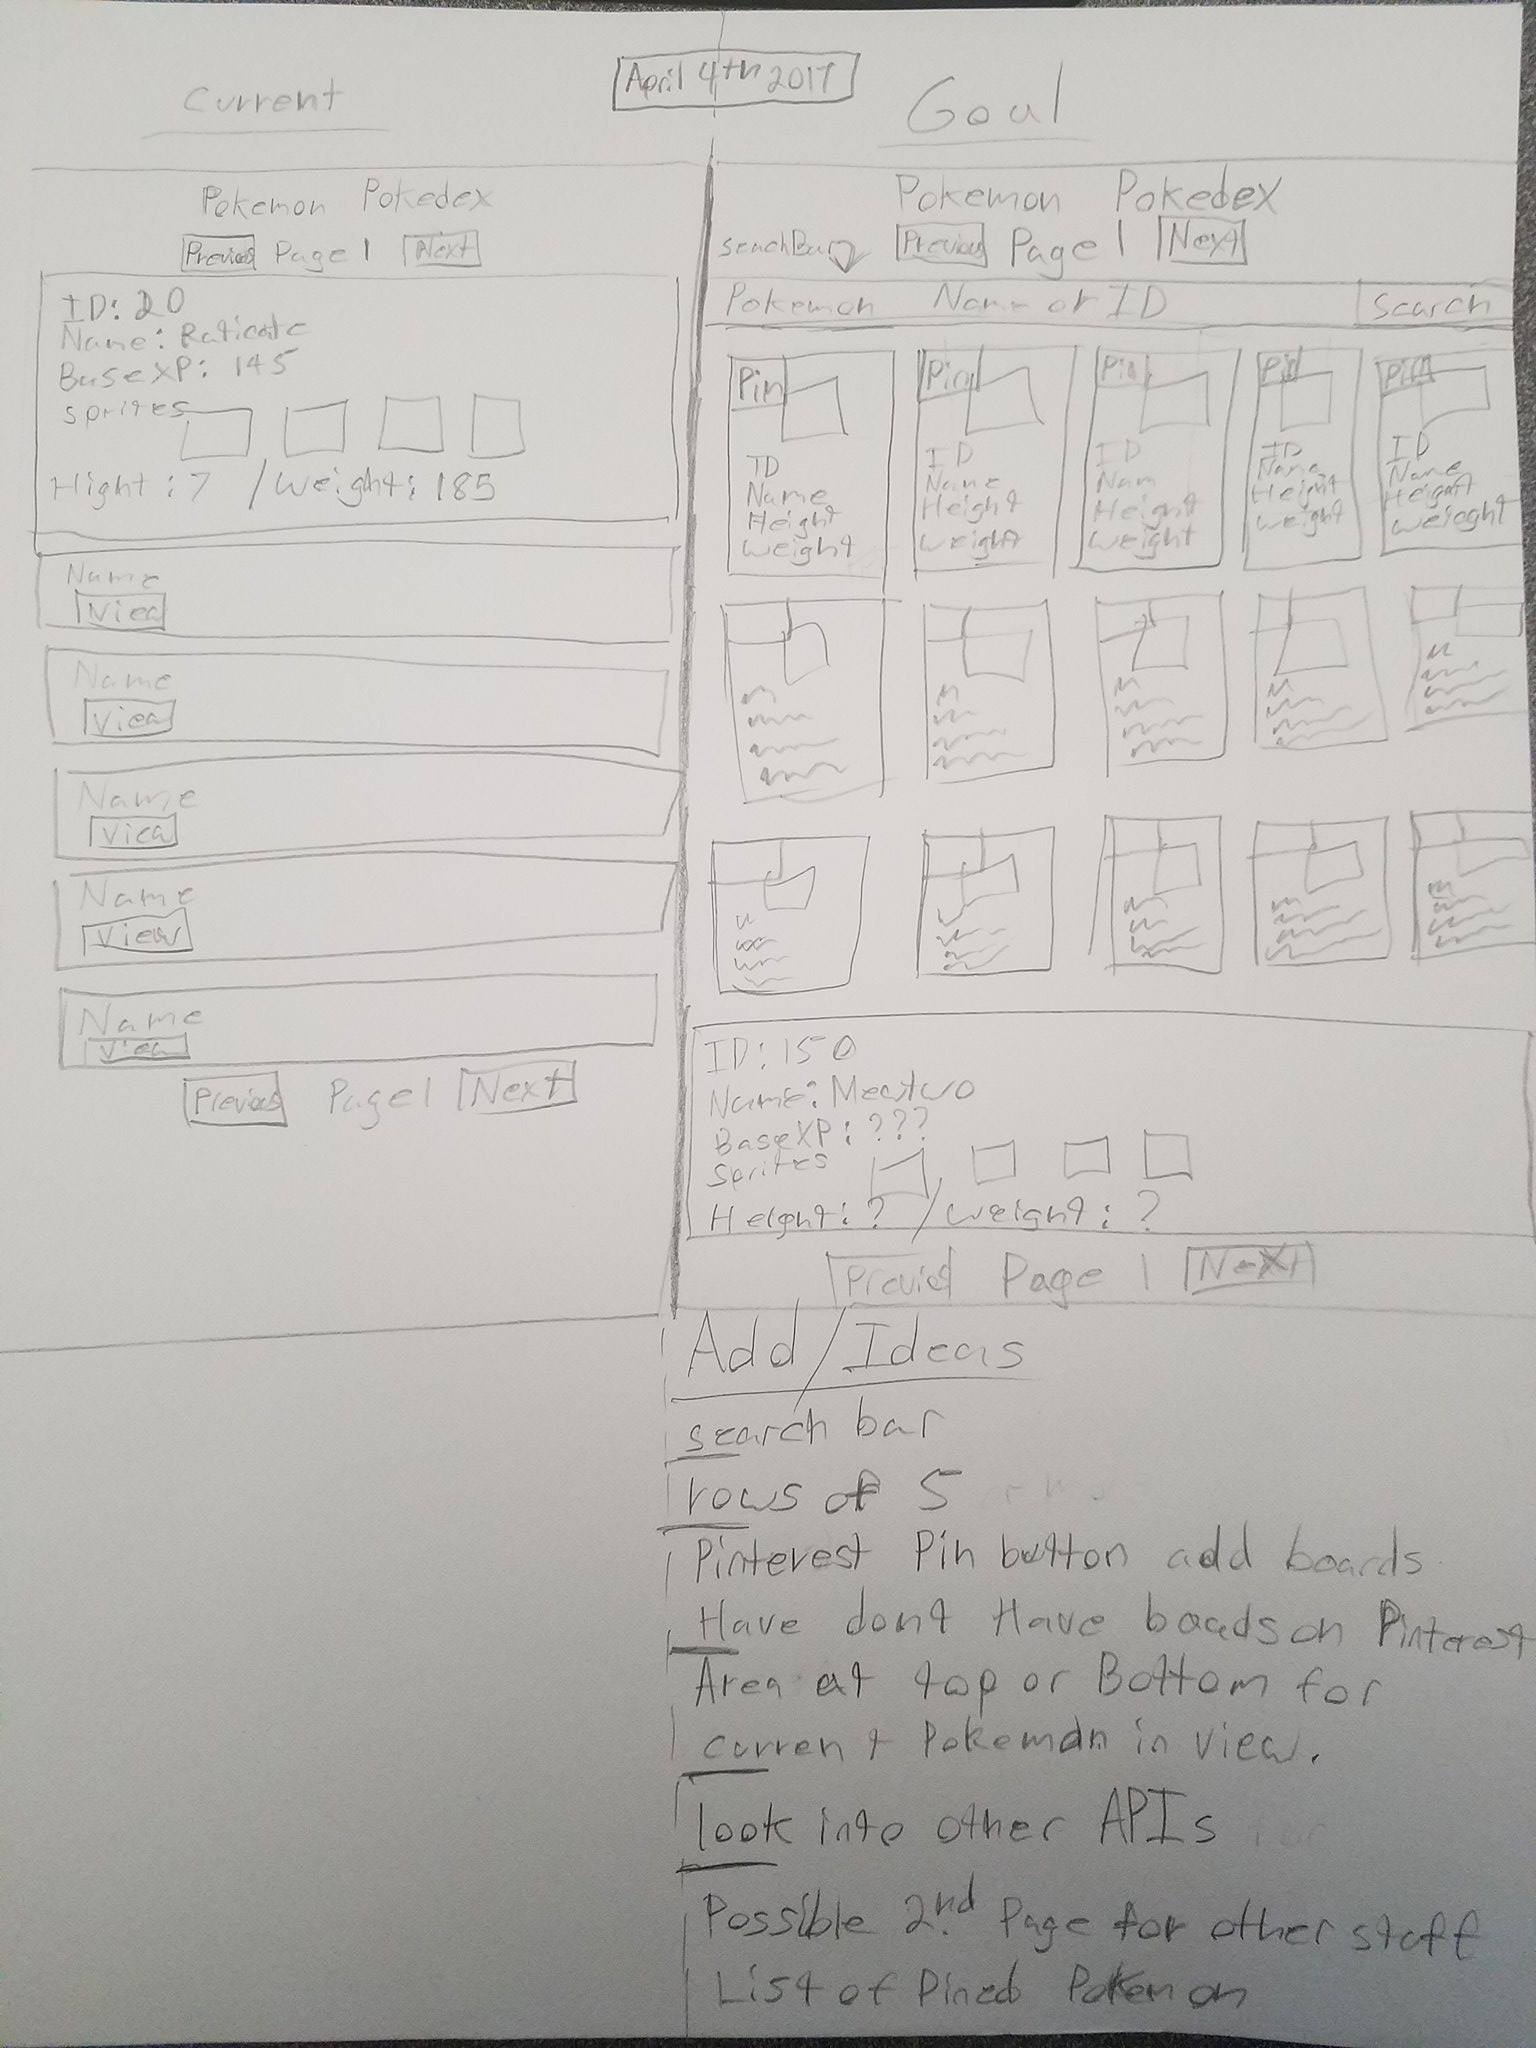 April 4th 2017
Current
Pokemon Pokedex
Previous Page 1 Next
ID: 20
Name: Raticate
Base XP: 145
Sprites
Hight : 7 / Weight: 185
Name
View
Name
View
Name
View
Name
View
Name
View
Previous Page 1 Next
Goal
Pokemon Pokedex
seachBar Previous Page 1 Next
Pokemon Name or ID Search
Pin Pin Pin Pin Pin
ID ID ID ID ID
Name Name Nam Name Name
Height Height Height Height Height
Weight Weight Weight Weight Weight
ID: 150
Name: Mewtwo
Base XP: ???
Sprites
Height: ? / Weight: ?
Previous Page 1 Next
Add / Ideas
search bar
rows of 5
Pinterest Pin button add boards
Have dont Have boads on Pinterest
Area at top or Bottom for
current Pokemon in view.
look into other APIs
Possible 2nd Page for other stuff
List of Pined Pokemon